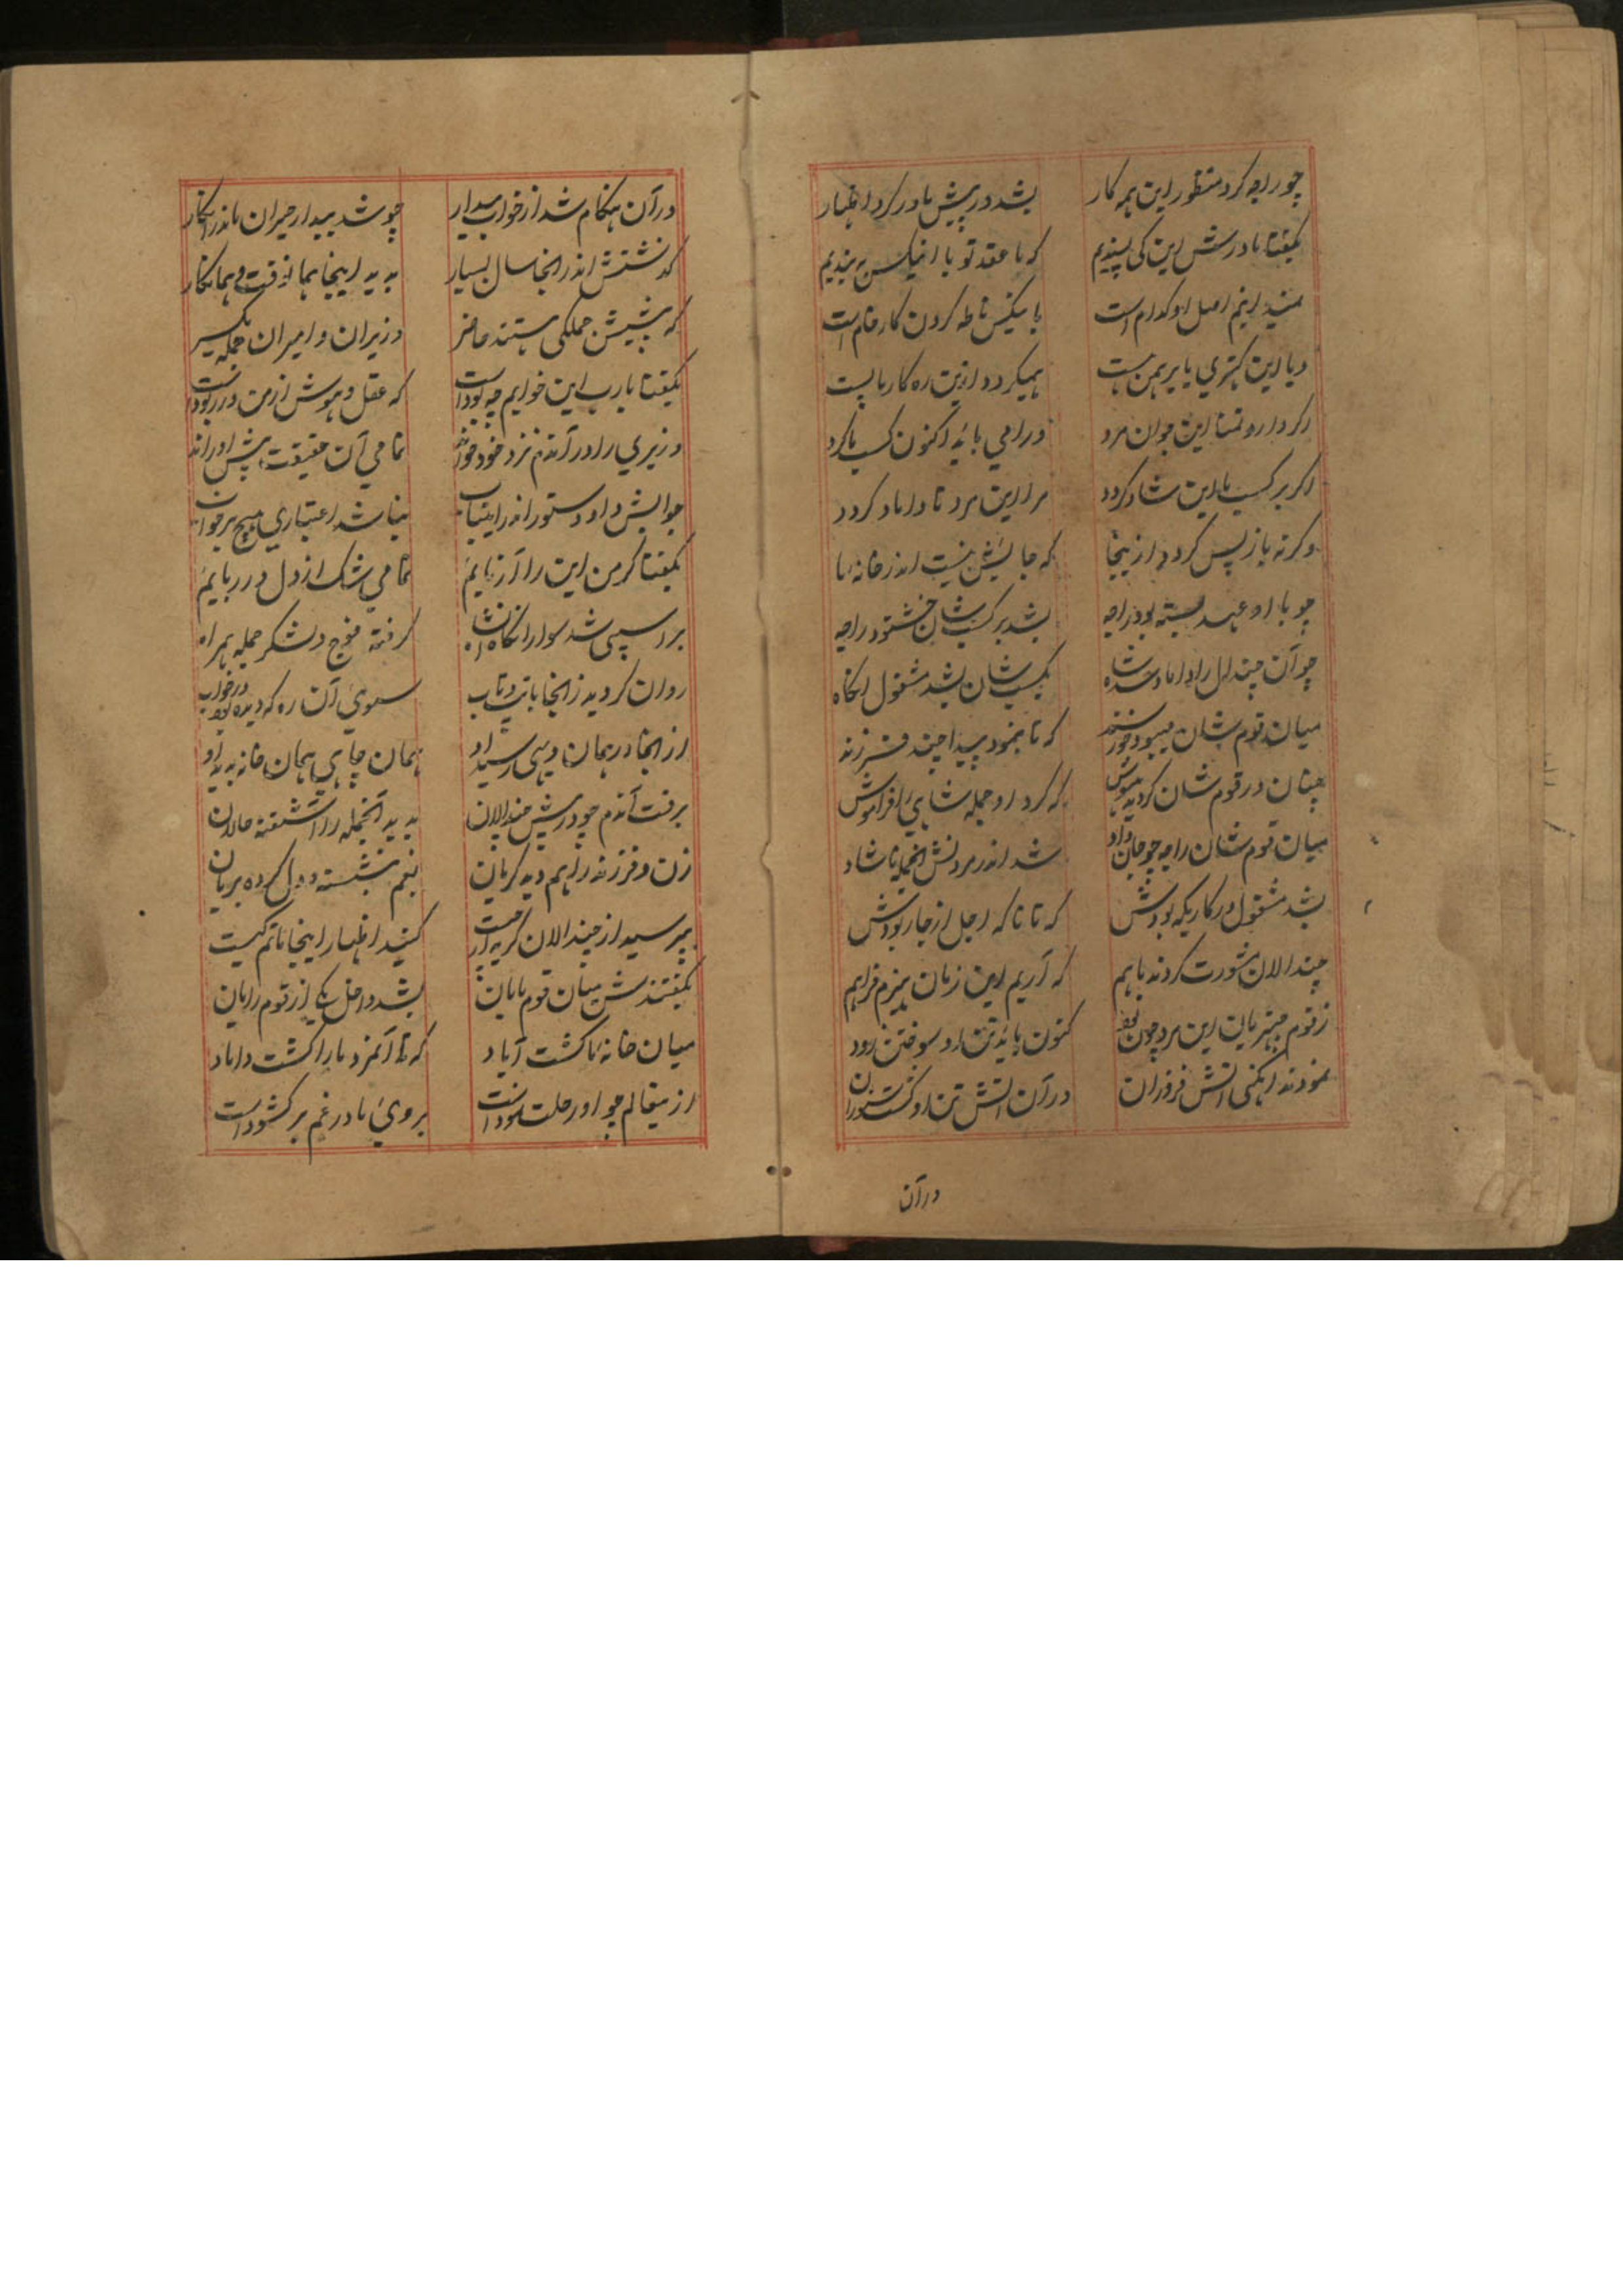 چو راجه کرد منظور این همه کار بشد در پیش مادر کرد اظهار
بگفتا مادرش این کی پسندیم که ما عقد تو با اینکس به بندیم
اصل او کدام است با نیکس ناطه کردن کار خام است
و یا این کهتری یا برهمن هست همیگردد ازین ره کار ما پست
این جوان مرد ورا می بائد اکنون کسب ما کرد
اگر بر کسب ما این شاد گردد مرا این مرد تا داماد گردد
وگرنه باز پس گردد از ینجا که جایش نیست اندر خانه ما
چو با او عهد بسته بود راجه بشد بر کسب شان خوشنود راجه
چو آن چندال را داماد شد شاه بکسب شان بشد مشغول آنگاه
میان قوم شان میبود خورسند که تا بنمود پیدا چند فرزند
چنان در قوم شان گردید بیهوش که کرد او جمله شاهی را فراموش
میان قوم شان راجه چو جان داد شد اندر مردنش آنجمله ناشاد
بشد مشغول در کاریکه بودش که تا ناگه اجل از جا ربودش
چندالان مشورت کردند باهم که آریم این زمان هیزم فراهم
ز قوم چتریان این مرد چون بود کنون بائد تن او سوختن زود
نمودند آنگهی آتش فروزان در آن آتش تن او گشت سوزان
در آن
در آن هنگام شد از خواب بیدار چو شد بیدار حیران ماند در انکار
گذشتش اندر آنجا سال بسیار به بد اینجا هما نوقت و همانکار
که پیشش جملگی هستند حاضر وزیران و امیران جمله یکسیر
بگفتا یا رب این خوابم چه بود است که عقل و هوش از من در ربود است
وزیری را در آندم نزد خود خواند تمامی آن حقیقت پیش او راند
جوابش داد دستور اندر اینباب نباشد اعتباری هیچ بر خواب
بگفتا گر من این را آزمایم تمامی شک از دل در ربایم
بر اسپی شد سوار آنگاه آن شاه گرفته فوج و لشکر جمله همراه
روان گردید زانجا با تب و تاب سوی آن ره که دیده بود در خواب
از آنجا در همان دیهی رسید او همان جای همان خانه بدید او
برفت آندم چو در پیش چندالان بدید آنجمله را آشفته حالان
زن و فرزند را هم دید گریان بغم بنشسته و دل کرده بریان
بپرسید از چندالان گریه از چیست کنید اظهار اینجا ماتم کیست
بگفتندش میان قوم مایان بشد داخل یکی از قوم رایان
میان خانه ما گشت آباد که تا آنمرد ما را گشت داماد
ازینعالم چو او رحلت نمود است بروی ما در غم بر گشود است